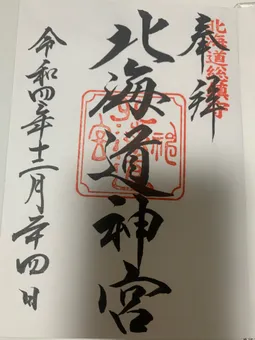 北海道総鎮守
奉拝
北海道神宮
令和四年十二月二十四日